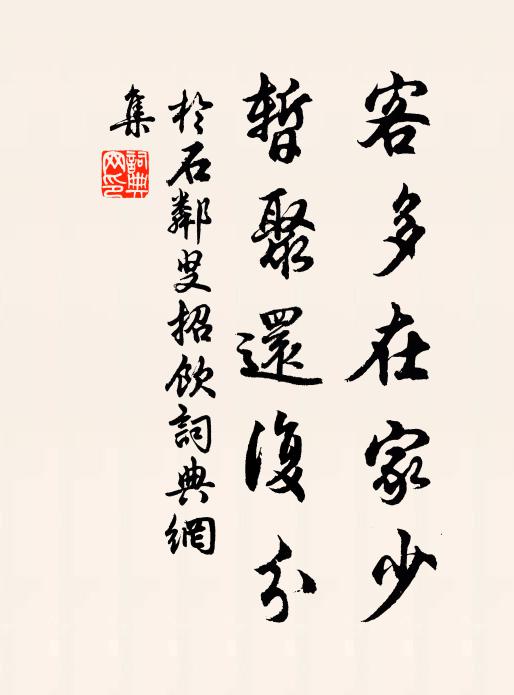 客多在家少
暫聚還復分
於石鄰叟招飲詞典網
集
詞典網印